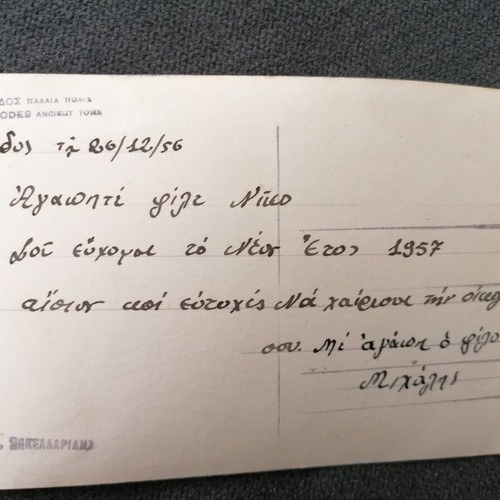 ΔΟΣ ΠΑΛΑΙΑ ΠΟΛΙΣ
ODES ANCIENT TOWN
δος τῇ 26/12/56
Ἀγαπητέ φίλε Νῖκο
Σοῦ εὔχομαι τό Νέον Ἔτος 1957
αἴσιον καί εὐτυχές Νά χαίρεσαι τήν
σου. Μέ ἀγάπη ὁ φίλο
Μιχάλης
ΣΑΚΕΛΛΑΡΙΔΗΣ